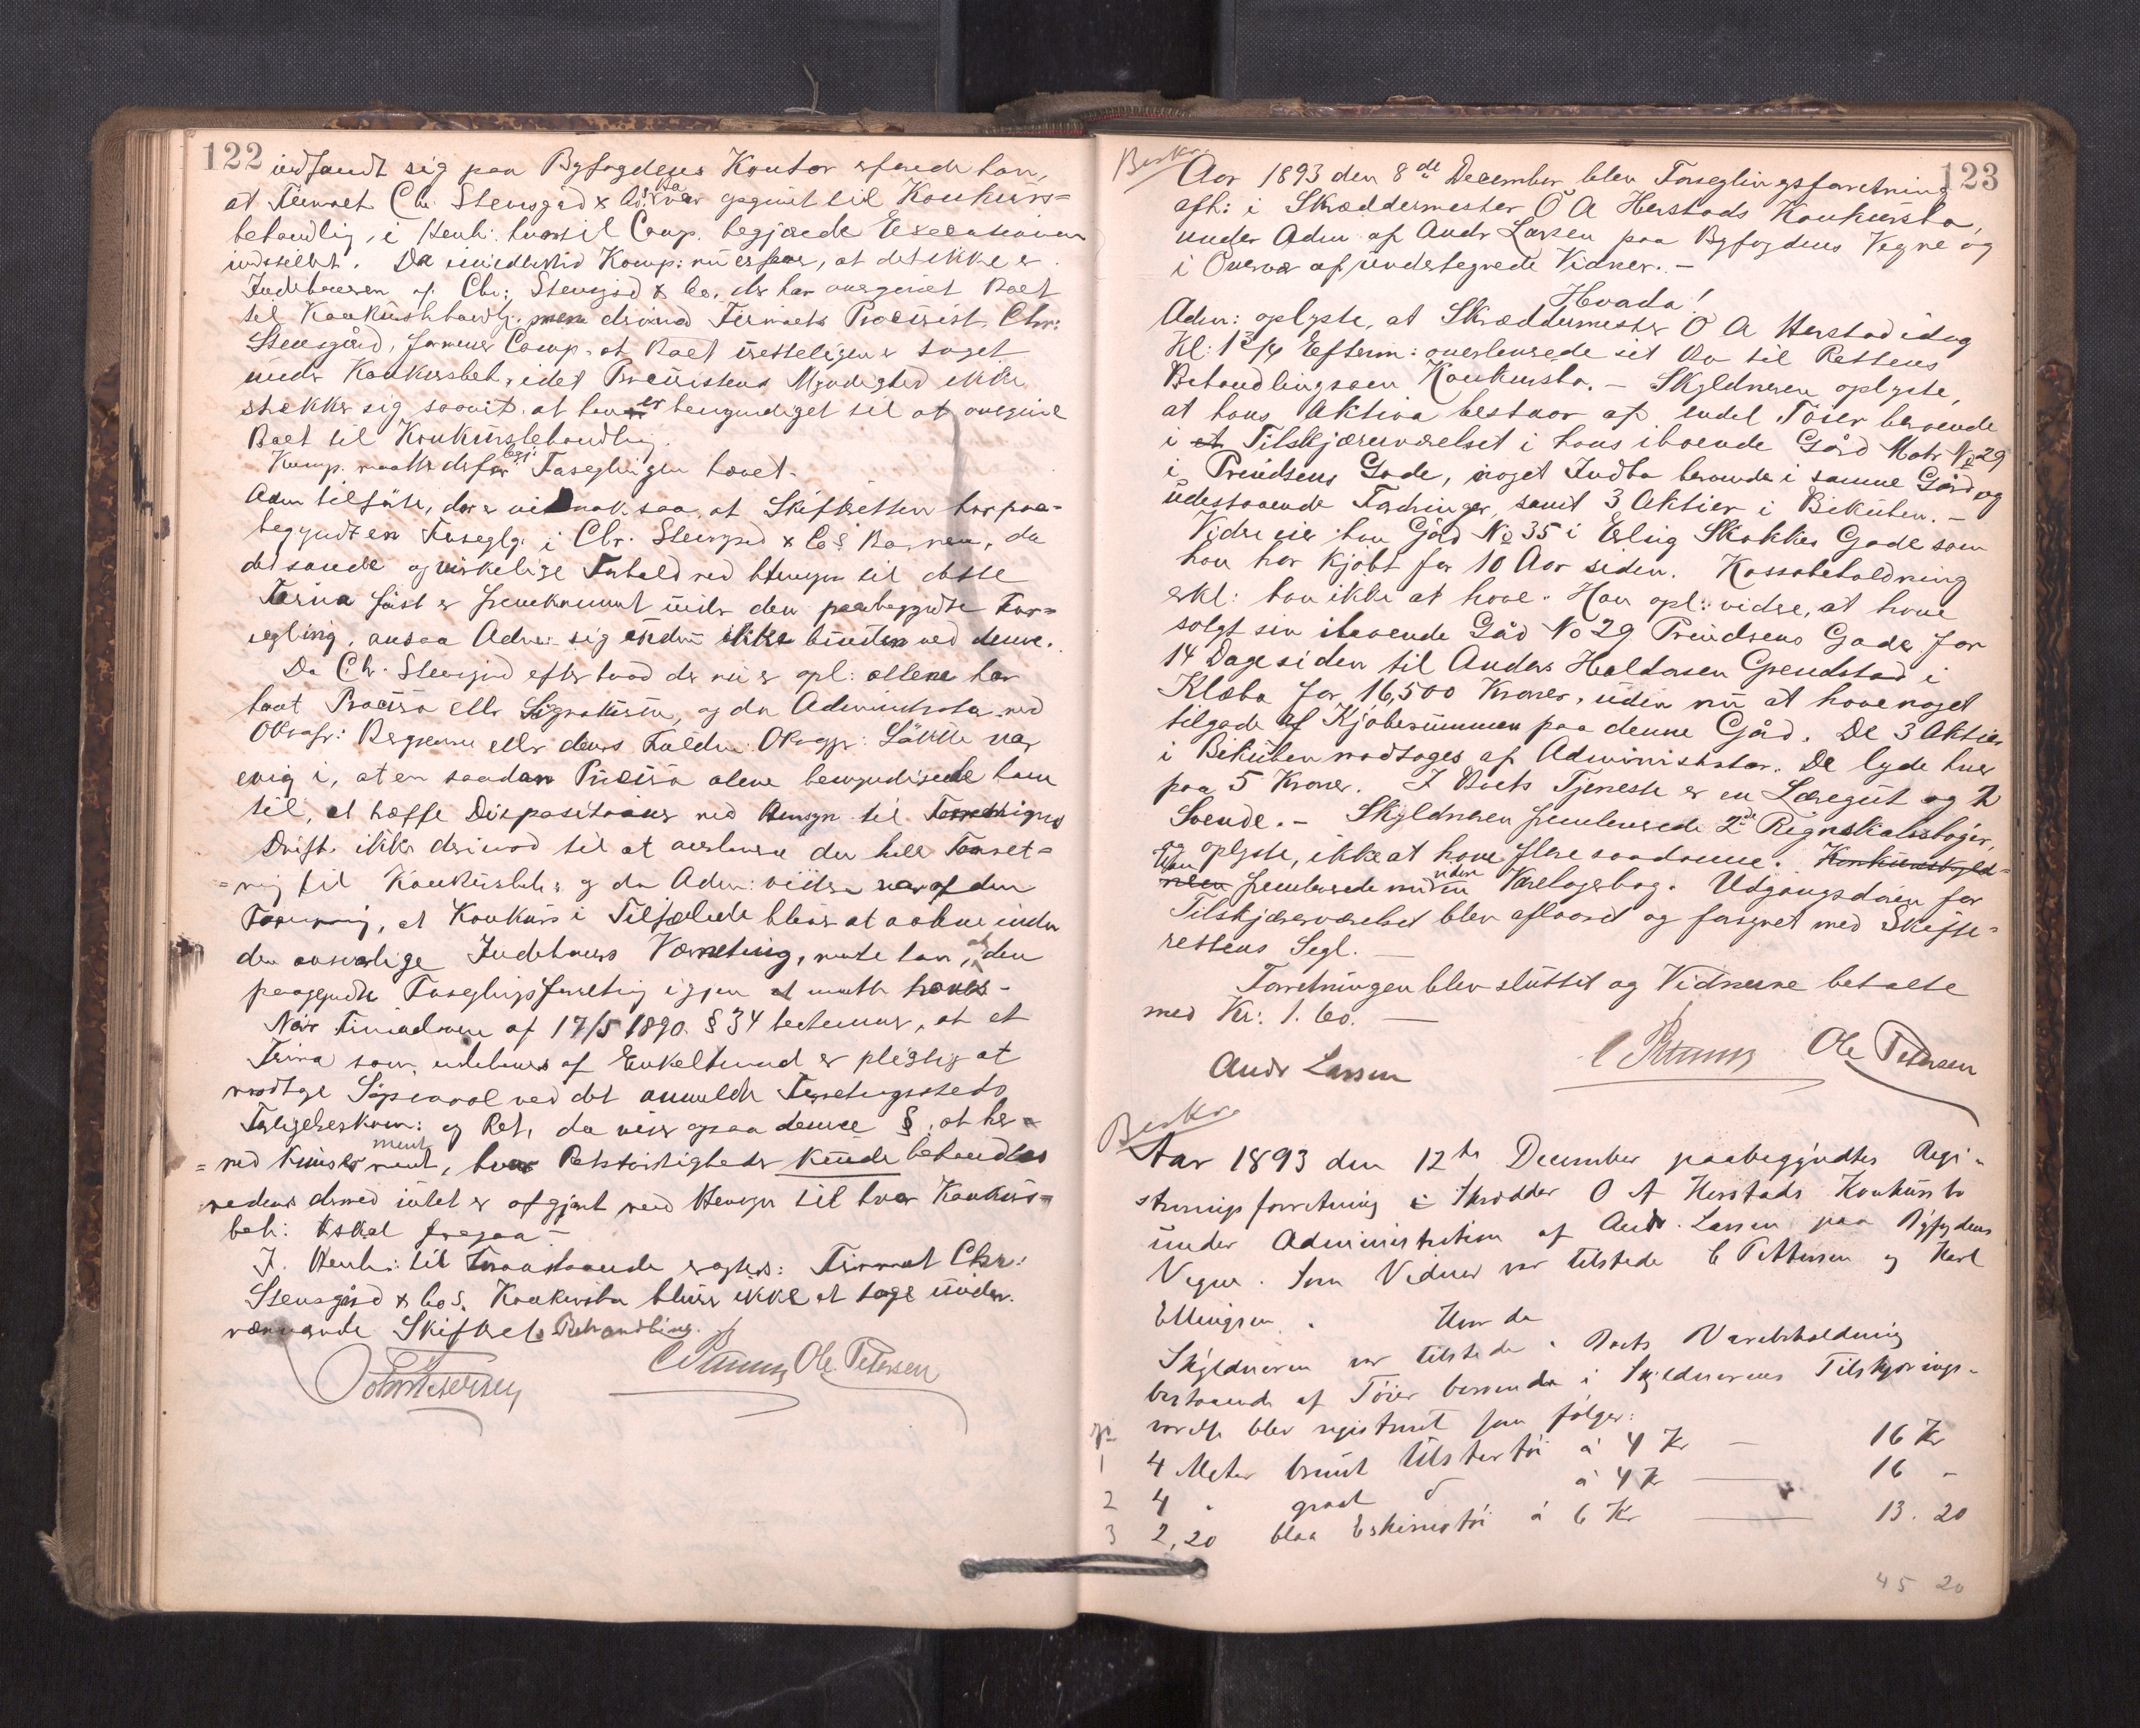 122
indfandt sig paa Byfogdens Kontor erfarede han,
at Firmaet Chr. Stensgård & Co's Bo var opgivet til Konkurs=
behandlig, i Henh: hvortil Comp. begjærede Executionen
indstillet. Da imidlertid Komp: nu erfarer, at det ikke er
Indehaveren af Chr: Stensgård & Co. der har overgivet Boet
til Konkursbehandlg. men derimod Firmaets Procurist Chr:
Stensgård, formener Comp. at Boet uretteligen er taget
under Konkursbeh, idet Procuristens Myndighed ikke
strækker sig saavidt at han er bemyndiget til at overgive
Boet til Konkursbehandlig.
Komp. maatte derfor begj: Forseglingen hævet.
Adm tilførte, at Skifteretten har paa=
begyndt en Forseglg. i Chr. Stensgård & Co's Bo, da
det sande og virkelige Forhold med Hensyn til dette
Firma først er fremkommet under den paabegyndte For=
segling, ansaa Adm: sig endnu ikke bunden ved denne.
Da Chr. Stensgård efter hvad der nu er opl: allene har
havt Procura eller Signaturen, og da Administrator med
ORsafr: Bergene eller dens Fuldm: ORsagf: Løkke var
enig i, at en saadan Procura alene bemyndigede ham
til, at træffe Dispositioner med Hensyn til Forretnings
Drift ikke derimod til at overlevere den hele Forret=
=ning til Konkursbeh, og da Adm: videre var af den
Formening, at Konkurs i Tilfælde bliver at aabne under
den ansvarlige Indehavers Værneting, mente han, at den
paabegyndte Forseglingsforretnig igjen maatte hæves.
Når Firmaloven af 17/5 1890 § 34 bestemmer, at et
Firma som indehaves af Enkeltmand er pligtig at
modtage Søgsmaal ved det anmeldte Forretningssteds
Forligelseskom: og Ret, da viser ogsaa denne §, at her=
=ved kuns er ment, hvor Retsstridigheder kunde behandles
medens dermed intet er afgjort med Hensyn til hvor Konkurs=
beh: skal foregaa.
I Henh: til Foranstaaende eragtes: Firmaet Chr:
Stensgård & Co's Konkursbo bliver ikke at tage under
nærværende Skifterets Behandling.
C Pettersen Ole Petersen
123
Beskr.
Aar 1893 den 8de December blev Forseglingsforretning
afh: i Skræddermester O A Herstads Konkursbo,
under Adm af Andr Larsen paa Byfogdens Vegne og
i Overvær af undertegnede Vidner. –
Hvorda!
Adm: oplyste, at Skræddermester O A Herstad idag
Kl: 1 3/4 Efterm: overleverede sit Bo til Rettens
Behandling som Konkursbo. – Skyldneren oplyste,
at hans Aktiva bestaar af endel Tøier beroende
i et Tilskjærerværelset i hans iboende Gård Matr No 29
i Prindsens Gade, noget Indbo beroende i samme Gård og
udestaaende Fordringer, samt 3 Aktier i Bikuben. –
Videre eier han Gård No 35 i Erling Skakkes Gade som
han har kjøbt for 10 Aar siden. Kassabeholdning
erkl: han ikke at have. Han opl: videre, at have
solgt sin iboende Gård No 29 Prindsens Gade for
14 Dage siden til Anders Haldorsen Grendstad i
Klæbo for 16,500 Kroner, uden nu at have noget
tilgode af Kjøbesummen paa denne Gård. De 3 Aktier
i Bikuben modtages af Administrator. De lyde hver
paa 5 Kroner. I Boets Tjeneste er en Læregut og 2
Svende. – Skyldneren fremleverede 2de Regnskabsbøger,
og oplyste, ikke at have flere saadanne. Konkursskyld=
neren Han fremleverede videre en Varelagerbog. Udgangsdøren for
Tilskjærerværelset blev aflaaset og forsynet med Skifte=
rettens Segl. –
Forretningen blev sluttet og Vidnerne betalte
med Kr: 1.60. –
Andr Larsen C Pettersen Ole Petersen
Beskr.
Aar 1893 den 12te December paabegyndtes Regi=
streringsforretning i Skrædder O A Herstads Konkursbo
under Administration af Andr. Larsen paa Byfogdens
Vegne. Som Vidner var tilstede C Pettersen og Karl
Ellingsen. Hvorda
Skyldneren var tilstede. Boets Varebeholdning
bestaaende af Tøier beroende i Skyldnerens Tilskjærings=
værelse blev registreret som følger:
1 4 Meter brunt Ulstertøi á 4 Kr – 16 Kr
2 4 " graat d á 4 Kr – 16 -
3 2,20 blaa Eskimotøi á 6 Kr – 13.20
45 20